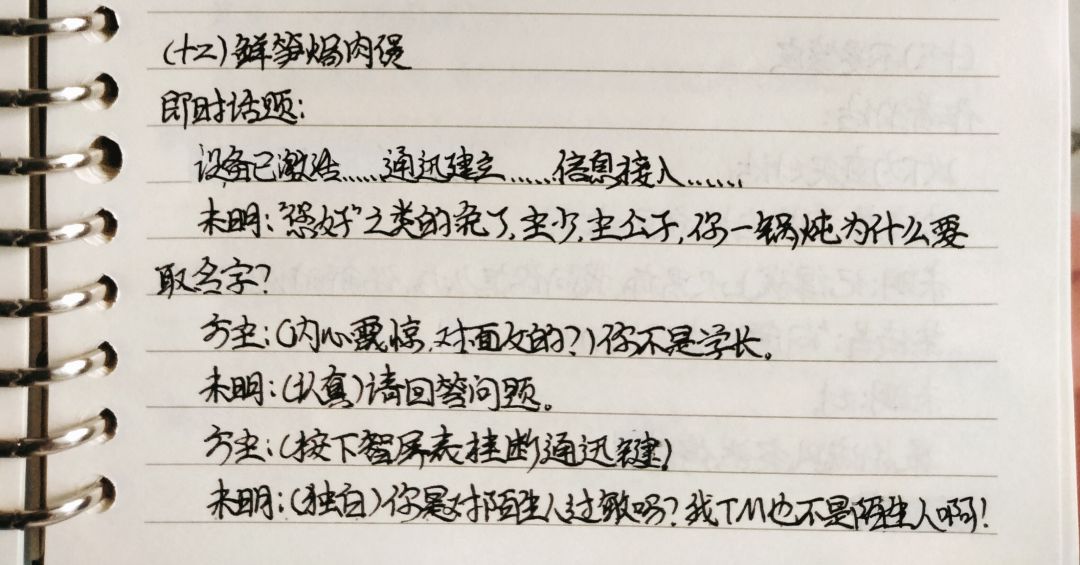 (十二)鲜笋焗肉煲
即时话题:
设备已激活……通迅建立……信息接入……
未明:"您好"之类的免了,主少,主公子,你一锅炖为什么要
取名字?
方主:(内心震惊,对面女的?)你不是学长。
未明:(认真)请回答问题。
方主:(按下智屏表挂断通迅键)
未明:(独白)你是对陌生人过敏吗?我TM也不是陌生人啊!